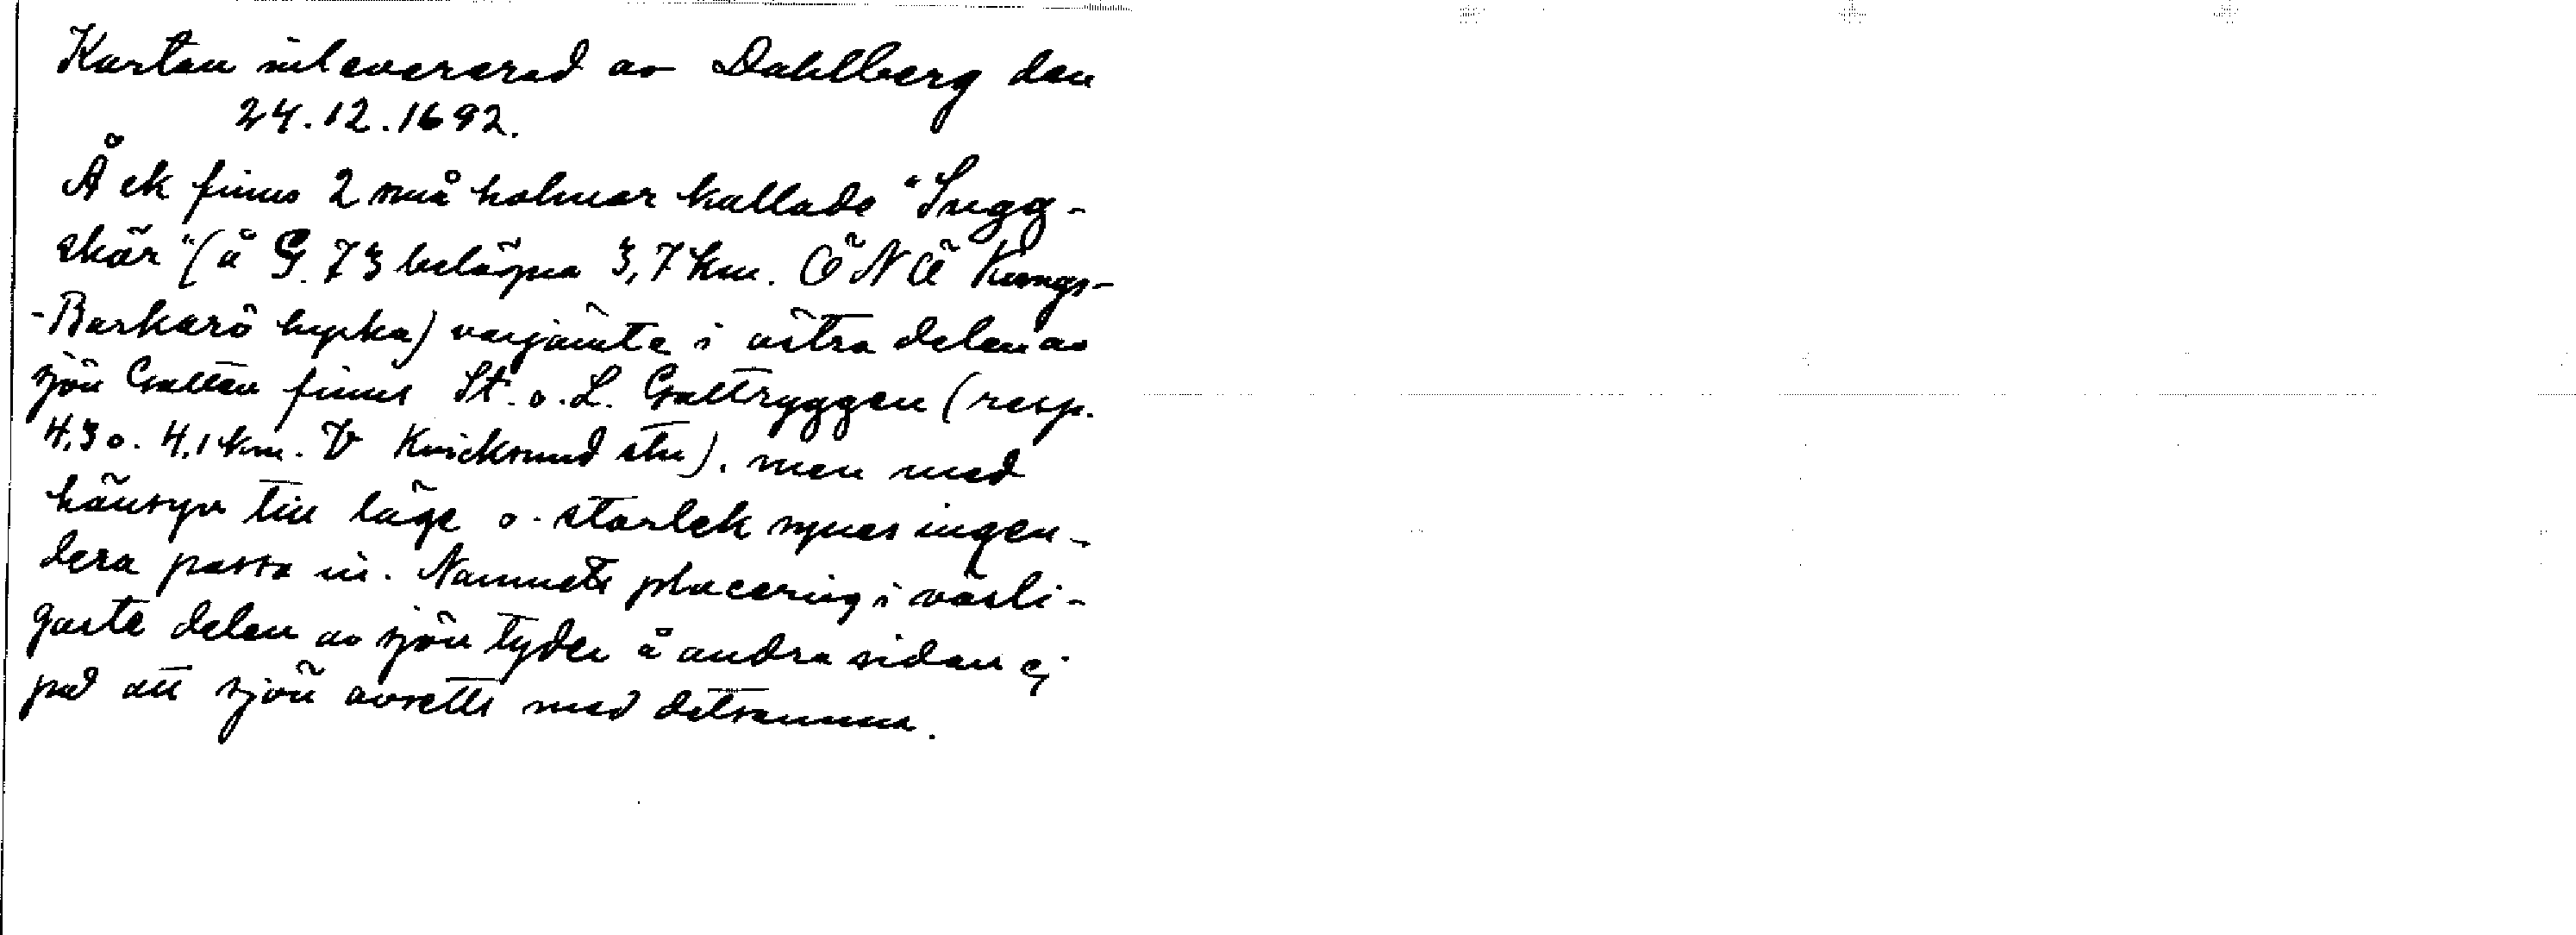 Kartan inlevererad av Dahlberg den
24.12.1692.
Å ek finns 2 små holmar kallade "Sugg-
skär" (å G. 73 belägna 3,7 km. ÖNÖ Kungs-
-Barkarö kyrka) varjämte i östra delen av
sjön Galten finns St. o. L. Galtryggen (resp.
4,3 o. 4,1 km. V Kvicksund stn), men med
hänsyn till läge o. storlek synes ingen-
dera passa in. Namnets placering i västli-
gaste delen av sjön tyder å andra sidan ej
på att sjön avsetts med detsamma.